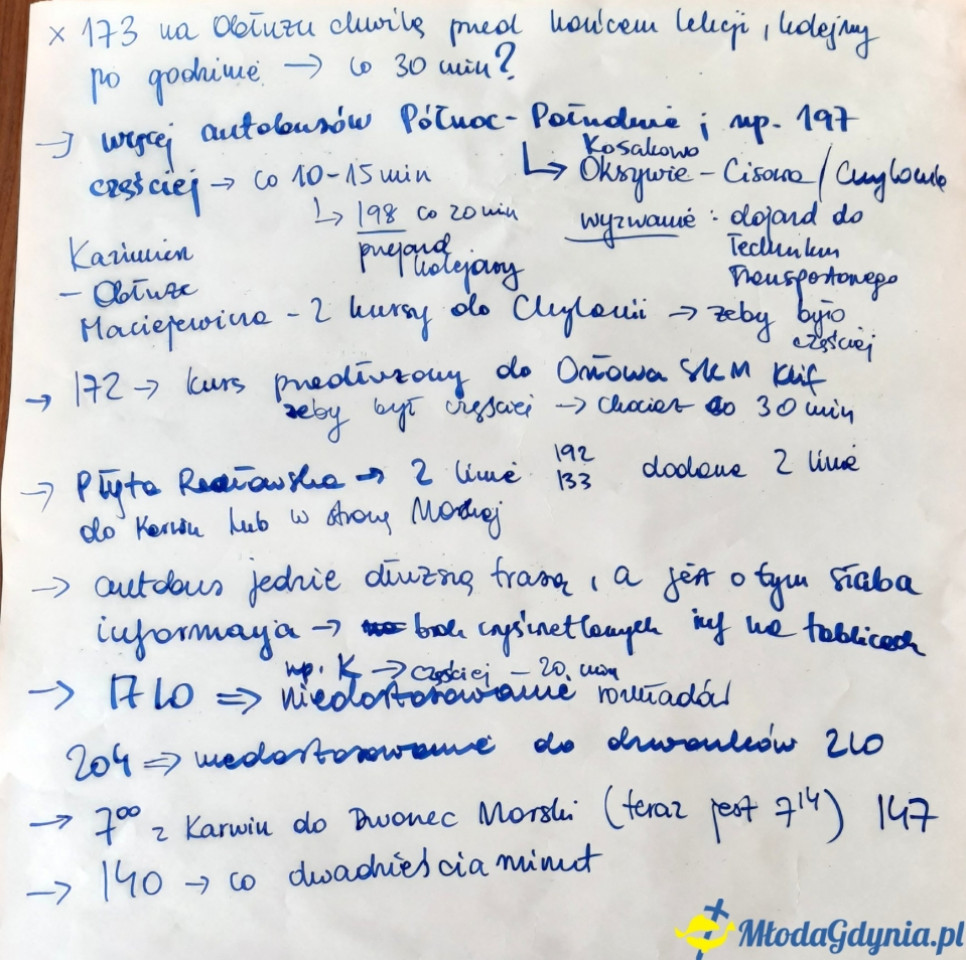 x 173 na Obłużu chwilę przed końcem lekcji, kolejny
po godzinie → co 30 min?
→ więcej autobusów Północ - Południe; np. 197
↳ Kosakowo
Oksywie - Cisowa / Chylonia
częściej → co 10-15 min
↳ 198 co 20 min
przejazd
kolejowy
wyzwanie: dojazd do
Technikum
Transportowego
Kazimierz
- Obłuże
Maciejewicza - 2 kursy do Chylonii → żeby było
częściej
→ 172 → kurs przedłużony do Orłowa SKM Klif
żeby był częściej → chociaż co 30 min
→ Płyta Redłowska → 2 linie 192
133 dodane 2 linie
do Karwin lub w stronę
→ autobus jedzie dłuższą trasą, a jest o tym słaba
informacja → brak wyświetlanych inf na tablicach
np. K → częściej - 20. min
→ 1710 ⇒ niedostosowanie rozkładów
204 ⇒ niedostosowanie do dzwonków 210
→ 7⁰⁰ z Karwin do Dworzec Morski (teraz jest 7¹⁴) 147
→ 140 → co dwadzieścia minut
MłodaGdynia.pl